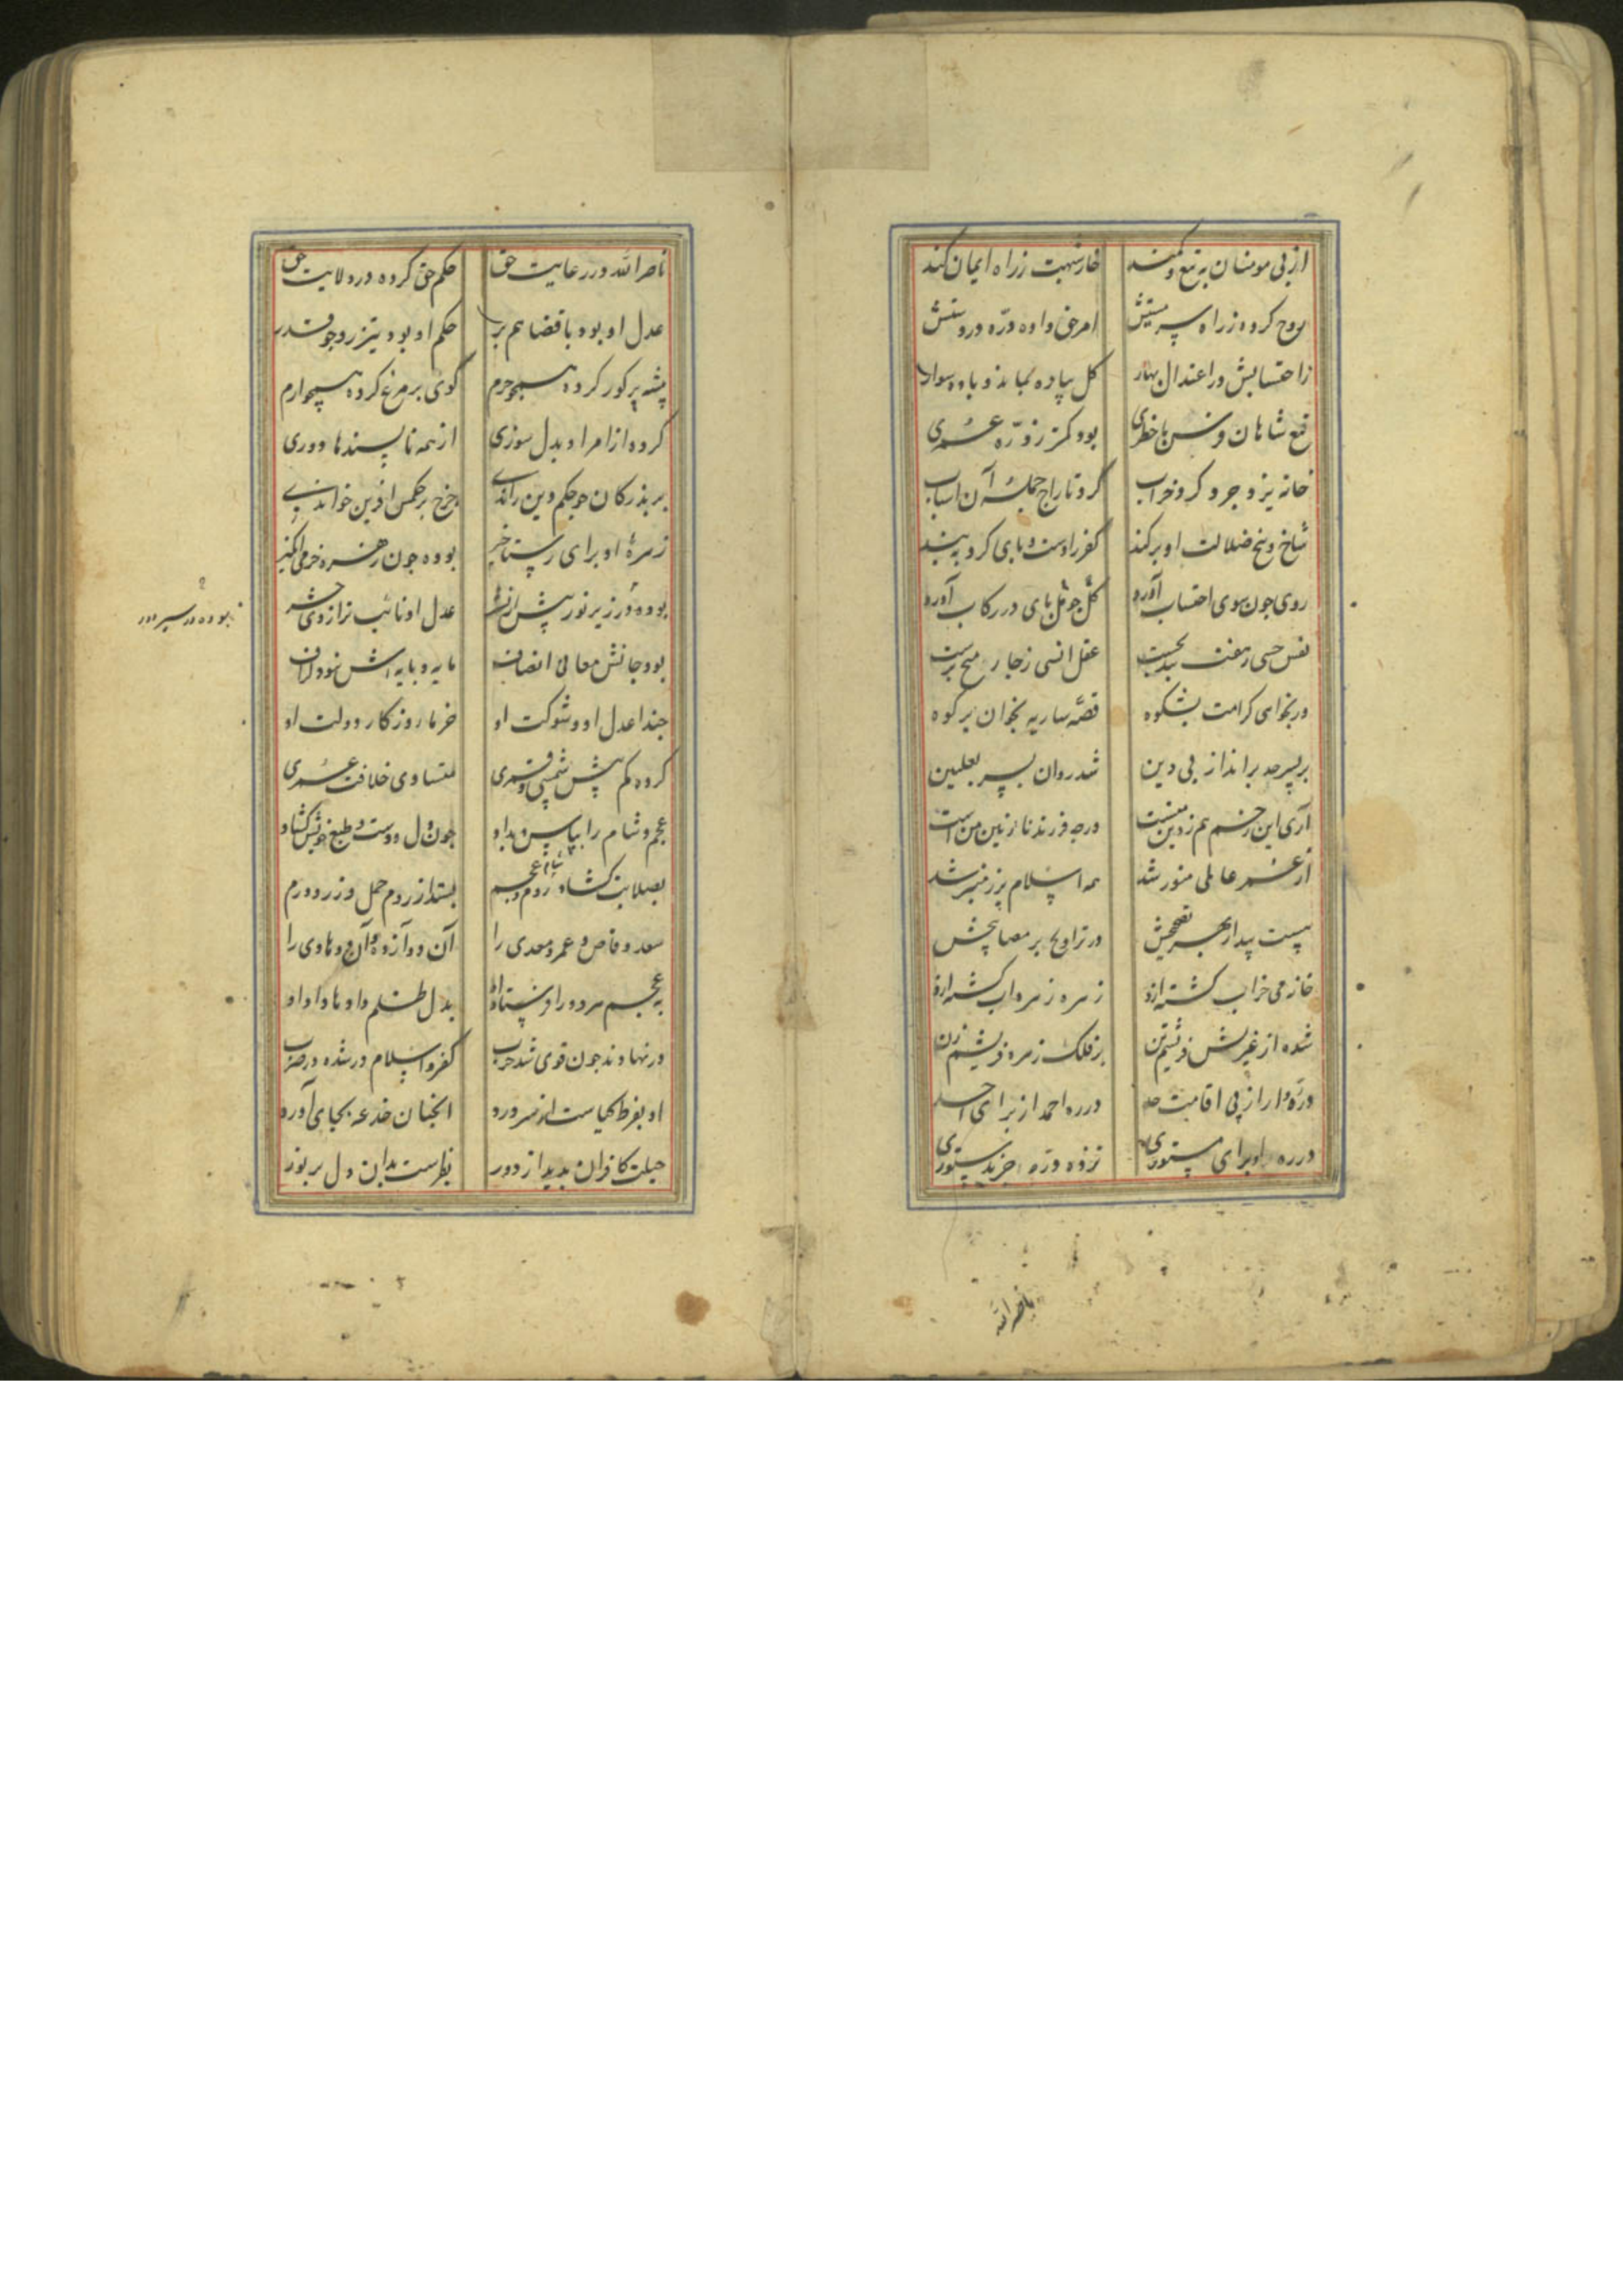 از پی مومنان به تیغ و کمند خار شبهت ز راه ایمان کند
روح کرده ز راه سرمستیش امر حق داده دره در دستش
ز احتسابش در اعتدال بهار کل پیاده نماند و باده سوار
قمع شاهان و خسرو با خطری بود کمتر ز دره عمری
خانه یزدجرد کرد خراب کرد تاراج جمله آن اسباب
شاخ و بیخ ضلالت او برکند کفر را دست و پای کرد به بند
روی جون سوی احتساب آورد گل جو مل پای در رکاب آورد
نفس حسی ز هفت بند بجست عقل انسی ز چار میخ برست
ور بخواهی کرامت بشکوه قصه ساریه بخوان بر کوه
بر پسر حد براند از پی دین شد روان پسر بعلیین
آری این رخنه هم ز دین منست ورچه فرزند نازنین من است
از عمر عاملی منور شد همه اسلام پر ز منبر شد
هست پیدا ز بهر تصحیحش در تراویح بر مصابیحش
خانه می خراب کشته ازو زهره زهره اب کشته ازو
شده از غیرتش فریشتین بر فلک زهره فریشم زن
دره وار از پی اقامت حد دره احمد از برای احد
دره او برای مستوری نزده دره جز بدستوری
ناصر الله
ناصر الله در رعایت حق حکم حق کرده در ولایت حق
عدل او بود با قضا هم بر حکم او بود تیزرو جو قدر
پشه پر کور کرده همچو حرم کوی بر مرغ کرده همچو ارم
کرده از امر او بدل سوزی از همه ناپسندها دوری
بر بزرکان جو حکم دین راندی چرخ بر حکمش افرین خواندی
زمره او برای رستاخیز بوده جون زهره خرمی انگیز
بوده در زیر نور پیش از نشر عدل او نائب ترازوی حشر
بوده در سیر دور
بود جانش معالی انصاف مایه و پایه اش نبود کزاف
حبذا عدل او و شوکت او خرما روزکار و دولت او
کرده کم پیش شمسی و قمری متساوی خلافت عمری
عجم و شام را بپاس و بداد جون دل و دست و طبع خویش کشاد
بصلابت کشاد روم و عجم بستد از روم حمل و زر و درم
شام عجم
سعد وقاص و عمرو معدی را آن دو آزاده و آن دو هادی را
به عجم هر دو را فرستاد او بدل ظلم دادها داد او
در نهاوند جون قوی شد حرب کفر و اسلام در شده در ضرب
او بفرط کیاست از سر درد انجنان خدعه بجای آورد
حیلت کافران بدید از دور بفرست بدان دل پر نور